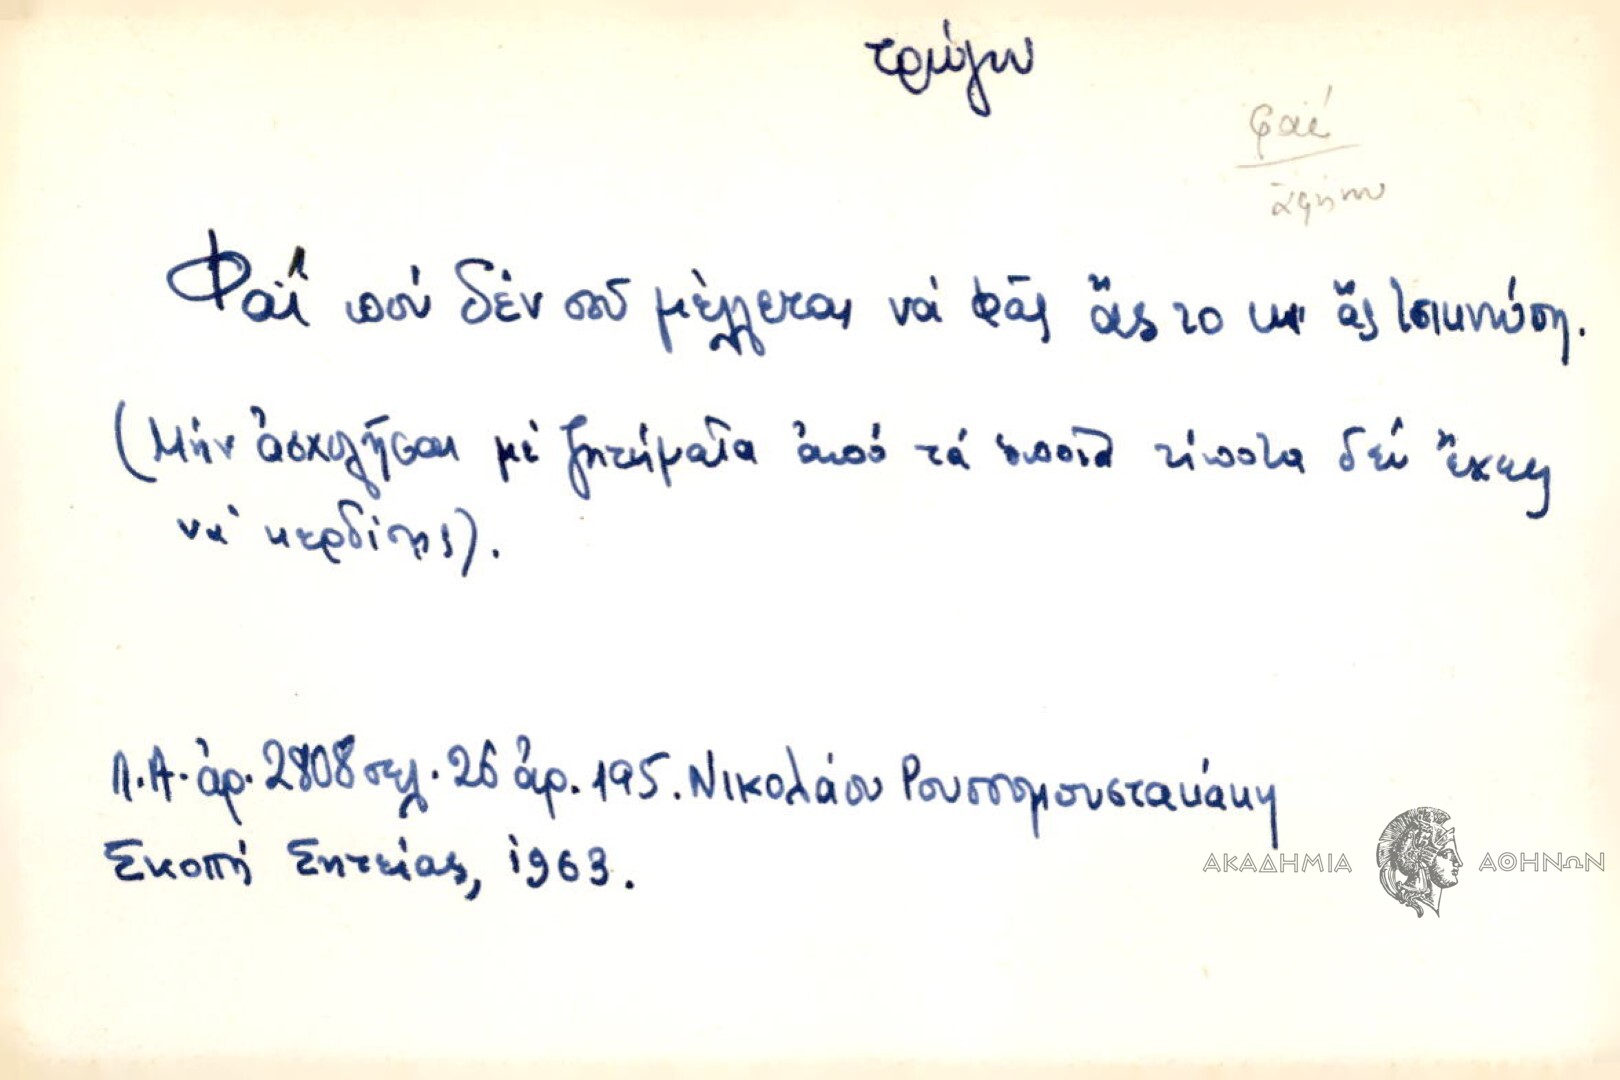 τρώγω
φαΐ
ἀφήνω
Φαΐ πού δέν σοῦ μέλλεται νά φᾶς ἄς το κι' ἄς τσικνώση.
(Μήν ἀσχολῆσαι μέ ζητήματα ἀπό τά ὁποῖα τίποτα δέν ἔχεις
νά κερδίσης).
Λ.Α. ἀρ. 2808 σελ. 26 ἀρ. 195. Νικολάου Ρουσσομουστακάκη
Σκοπή Σητείας, 1963.
ΑΚΑΔΗΜΙΑ ΑΘΗΝΩΝ